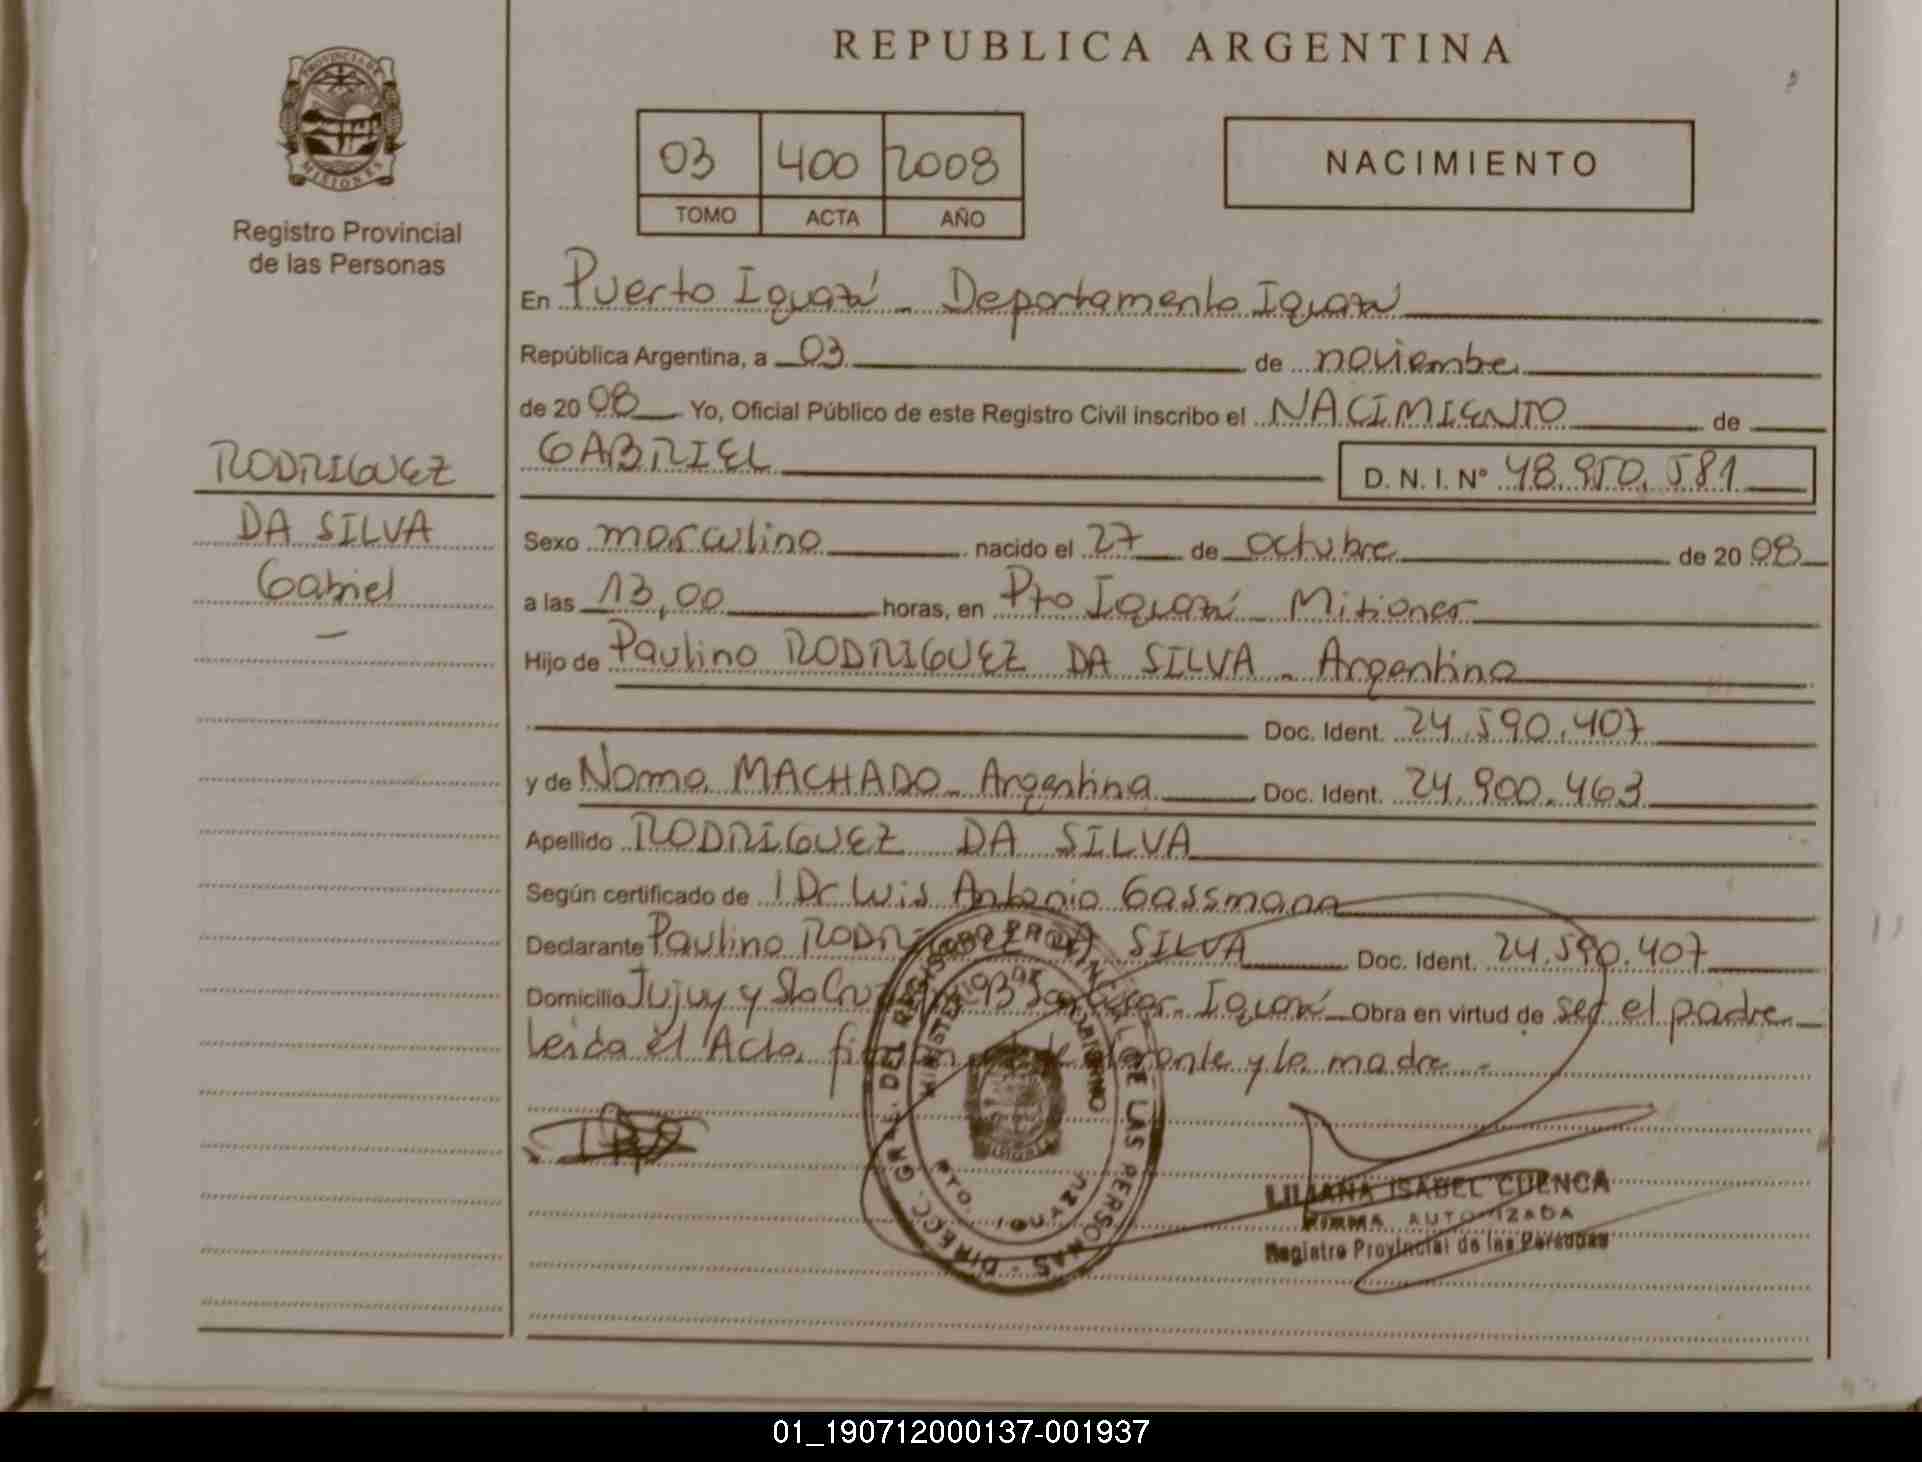 REPUBLICA ARGENTINA
PROVINCIA DE
MISIONES
Registro Provincial
de las Personas
03 400 2008
TOMO ACTA AÑO
NACIMIENTO
En Puerto Iguazú - Departamento Iguazú
República Argentina, a 03 de noviembre
de 2008 Yo, Oficial Público de este Registro Civil inscribo el NACIMIENTO de
GABRIEL D. N. I. Nº 48.950.581
RODRIGUEZ
DA SILVA
Gabriel
Sexo masculino nacido el 27 de octubre de 2008
a las 13,00 horas, en Pto Iguazú - Misiones
Hijo de Paulino RODRIGUEZ DA SILVA - Argentino
Doc. Ident. 24.590.407
y de Norma MACHADO - Argentina Doc. Ident. 24.900.463
Apellido RODRIGUEZ DA SILVA
Según certificado de Dr Luis Antonio Gassmann
Declarante Paulino RODRIGUEZ DA SILVA Doc. Ident. 24.590.407
Domicilio Jujuy y Sta Cruz Iguazú Obra en virtud de ser el padre
Leída el Acta y la madre -
DIRECC. GRAL. DEL REGISTRO PROVINCIAL DE LAS PERSONAS
MINISTERIO DE GOBIERNO
PTO. IGUAZU
LILIANA ISABEL CUENCA
FIRMA AUTORIZADA
Registro Provincial de las Personas
01_190712000137-001937